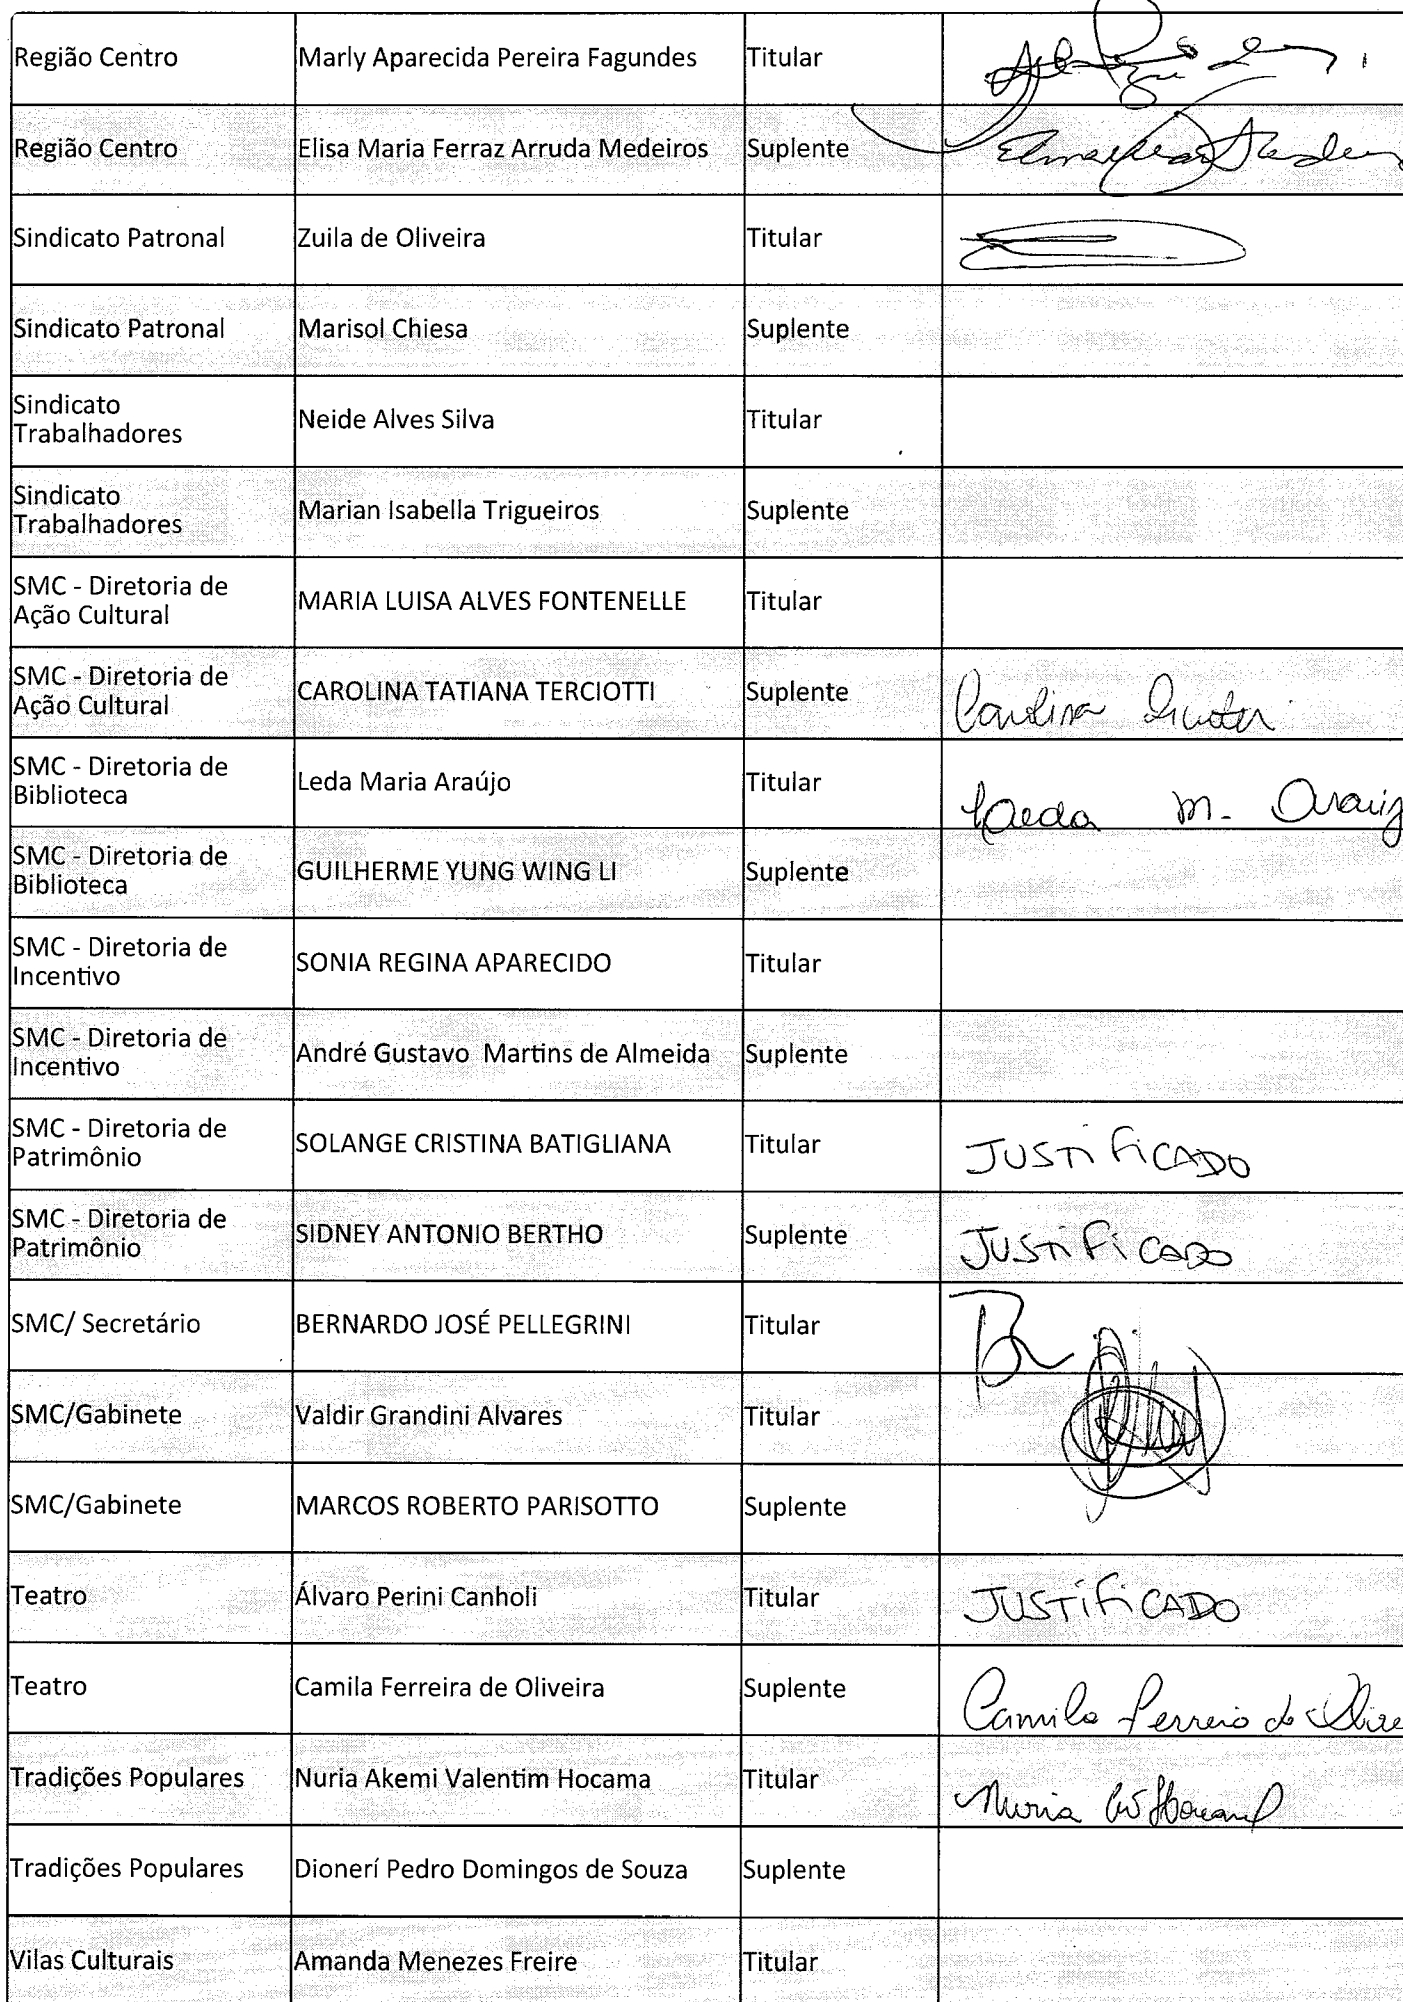 Região Centro Marly Aparecida Pereira Fagundes Titular
Região Centro Elisa Maria Ferraz Arruda Medeiros Suplente
Sindicato Patronal Zuila de Oliveira Titular
Sindicato Patronal Marisol Chiesa Suplente
Sindicato
Trabalhadores Neide Alves Silva Titular
Sindicato
Trabalhadores Marian Isabella Trigueiros Suplente
SMC - Diretoria de
Ação Cultural MARIA LUISA ALVES FONTENELLE Titular
SMC - Diretoria de
Ação Cultural CAROLINA TATIANA TERCIOTTI Suplente Carolina
SMC - Diretoria de
Biblioteca Leda Maria Araújo Titular Leda M. Araujo
SMC - Diretoria de
Biblioteca GUILHERME YUNG WING LI Suplente
SMC - Diretoria de
Incentivo SONIA REGINA APARECIDO Titular
SMC - Diretoria de
Incentivo André Gustavo Martins de Almeida Suplente
SMC - Diretoria de
Patrimônio SOLANGE CRISTINA BATIGLIANA Titular JUSTIFICADO
SMC - Diretoria de
Patrimônio SIDNEY ANTONIO BERTHO Suplente JUSTIFICADO
SMC/ Secretário BERNARDO JOSÉ PELLEGRINI Titular
SMC/Gabinete Valdir Grandini Alvares Titular
SMC/Gabinete MARCOS ROBERTO PARISOTTO Suplente
Teatro Álvaro Perini Canholi Titular JUSTIFICADO
Teatro Camila Ferreira de Oliveira Suplente Camila Ferreira de Olive
Tradições Populares Nuria Akemi Valentim Hocama Titular Nuria
Tradições Populares Dionerí Pedro Domingos de Souza Suplente
Vilas Culturais Amanda Menezes Freire Titular